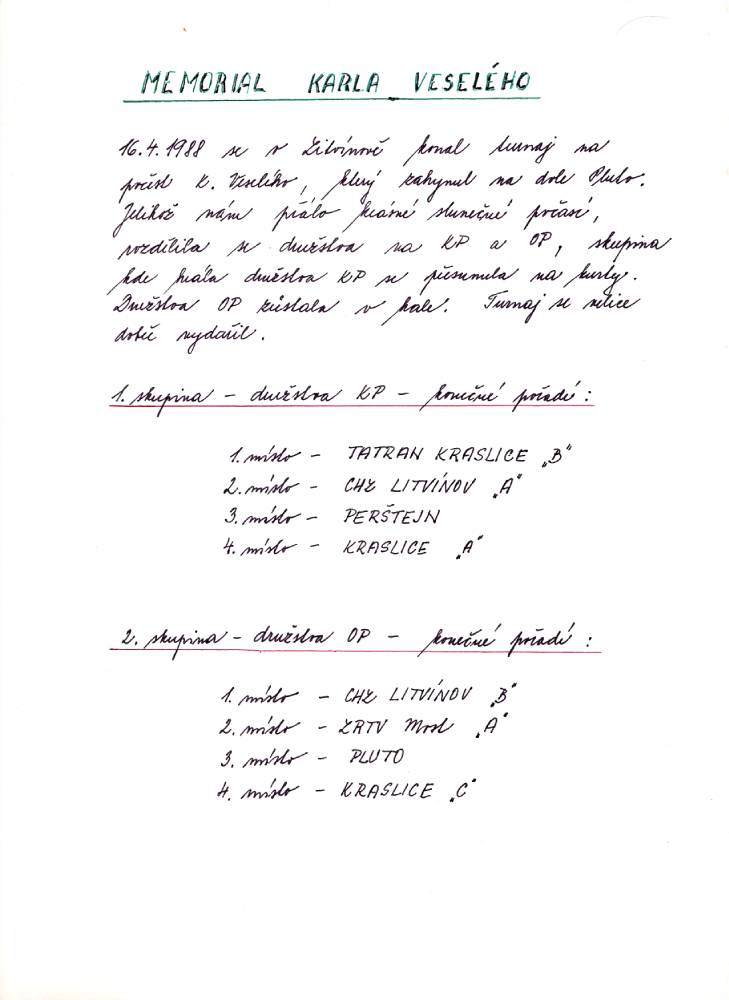 MEMORIAL KARLA VESELÉHO
16.4.1988 se v Litvínově konal turnaj na
počest K. Veselého, který zahynul na dole Pluto.
Jelikož nám přálo krásné slunečné počasí,
rozdělila se družstva na KP a OP, skupina
kde hrála družstva KP se přesunula na kurty.
Družstva OP zůstala v hale. Turnaj se velice
dobře vydařil.
1. skupina - družstva KP - konečné pořadí :
1. místo - TATRAN KRASLICE „B"
2. místo - CHZ LITVÍNOV „A"
3. místo - PERŠTEJN
4. místo - KRASLICE „A"
2. skupina - družstva OP - konečné pořadí :
1. místo - CHZ LITVÍNOV „B"
2. místo - ZRTV Most „A"
3. místo - PLUTO
4. místo - KRASLICE „C"